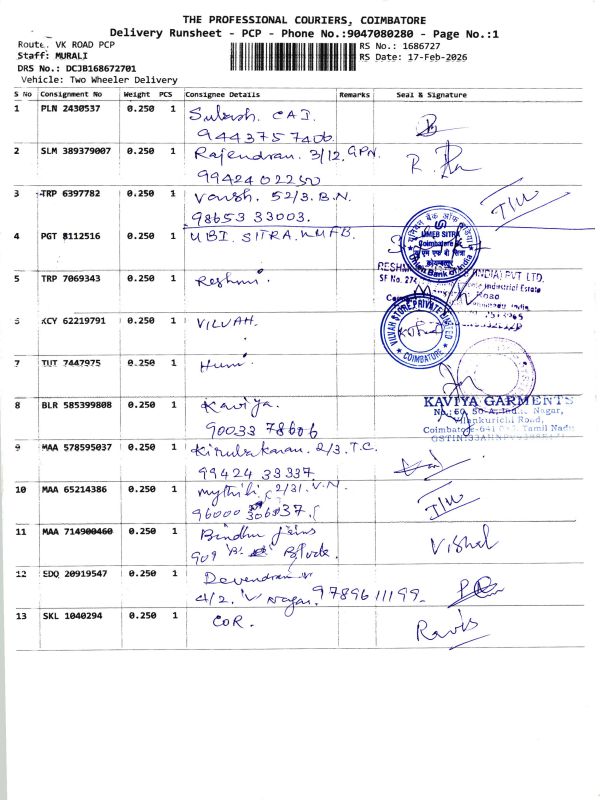 THE PROFESSIONAL COURIERS, COIMBATORE
Delivery Runsheet - PCP - Phone No.:9047080280 - Page No.:1
Route: VK ROAD PCP
Staff: MURALI
DRS No.: DCJB168672701
Vehicle: Two Wheeler Delivery
RS No.: 1686727
RS Date: 17-Feb-2026
S No Consignment No Weight PCS Consignee Details Remarks Seal & Signature
1 PLN 2430537 0.250 1 Subash. CAI.
9443757406.
2 SLM 389379007 0.250 1 Rajendran. 3/12. G.P.N.
9942402250
3 TRP 6397782 0.250 1 52/3. B.N.
98653 33003.
4 PGT 8112516 0.250 1 UBI. SITRA.
UMFB SITRA
Coimbatore
Union Bank of India
5 TRP 7069343 0.250 1 Reshmi.
(INDIA) PVT LTD.
SF No. 274
Industrial Estate
6 KCY 62219791 0.250 1 VILVAH.
VILVAH STORE PRIVATE LIMITED
COIMBATORE
7 TUT 7447975 0.250 1
8 BLR 585399808 0.250 1 Kaviya.
90033 78606
KAVIYA GARMENTS
Nagar,
Vilankurichi Road,
Tamil Nadu
9 MAA 578595037 0.250 1 Kirubakaran. 2/3. T.C.
99424 33337
10 MAA 65214386 0.250 1 Mythili, 2/31. V.N.
11 MAA 714900460 0.250 1 Bindhu Jains
909 'B' Block.
Vishal
12 EDQ 20919547 0.250 1 Devendran
4/2. V Nagar. 9789611199.
13 SKL 1040294 0.250 1 COR.